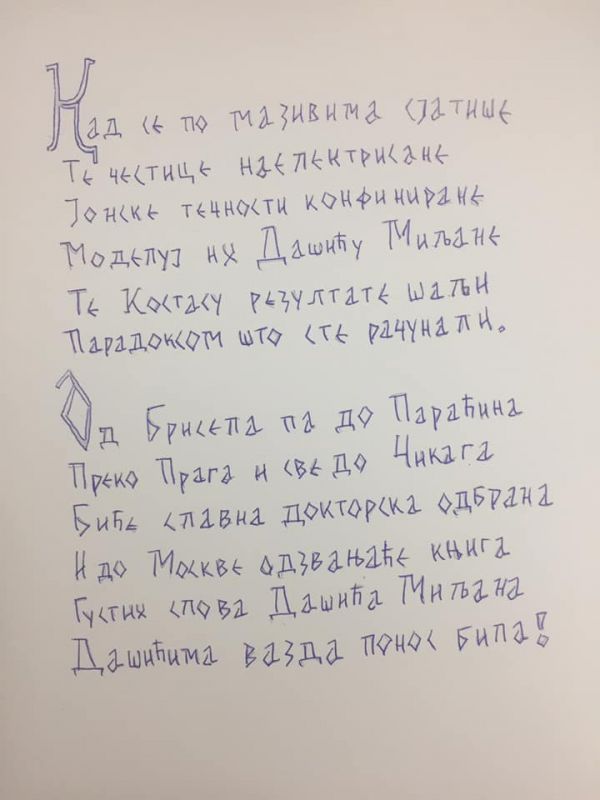 Кад се по мазивима сјатише
Те честице наелектрисане
Јонске течности конфиниране
Моделуј их Дашићу Миљане
Те Костасу резултате шаљи
Парадоксом што сте рачунали.
Од Брисела па до Параћина
Преко Прага и све до Чикага
Биће славна докторска одбрана
И до Москве одзвањаће књига
Густих слова Дашића Миљана
Дашићима вазда понос била!